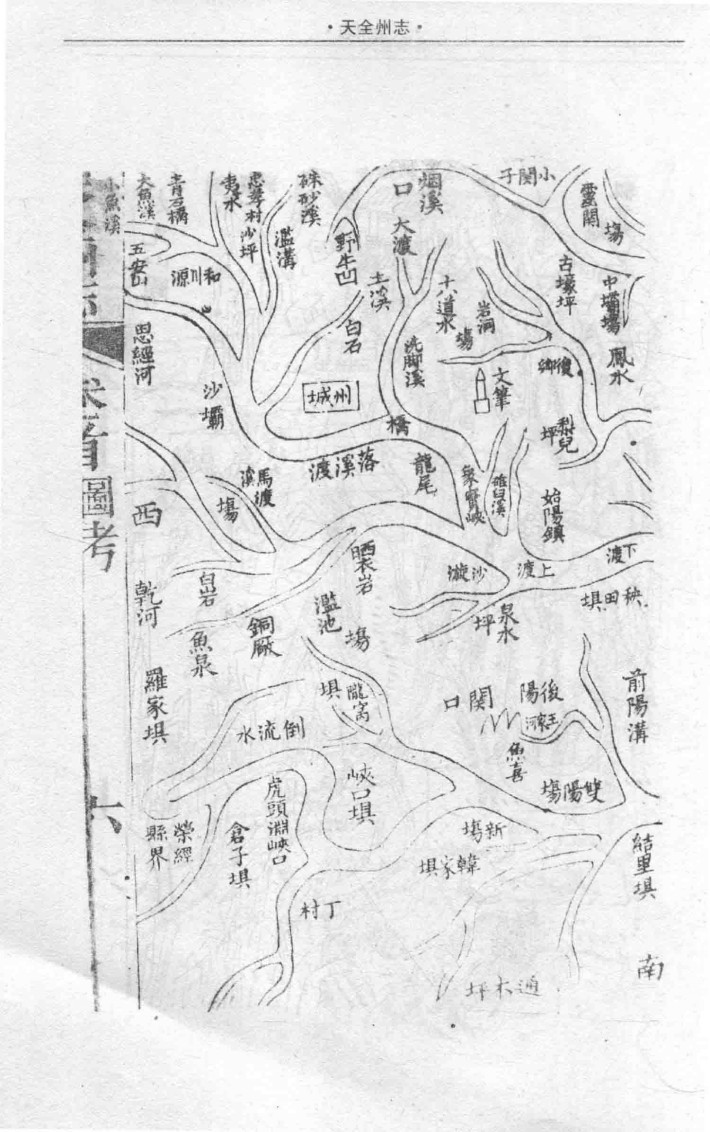 ·天全州志·
小魚溪
大魚溪
青石橋
夷水
沙坪
濫溝
硃砂溪
野牛凹
烟溪口
大渡
小関子
靈関塲
五安山
和川源
土溪
十八道水
岩洞塲
古壕坪
中壩塲
白石
洗脚溪
思經河
沙壩
州城
文筆
後鄉
鳳水
橋
梨兒坪
落溪渡
龍尾
馬渡溪
塲
西
碓臼溪
始陽鎮
晒衣岩
沙漩
上渡
下渡
秧田垻
白岩
乾河
濫池塲
泉水坪
銅厰
魚泉
羅家垻
隴窩垻
関口
後陽
前陽溝
倒流水
魚喜
雙陽塲
峽口垻
虎頭淵峽口
倉子垻
榮經縣界
新塲
韓家垻
結里垻
丁村
南
通木坪
圖考
六